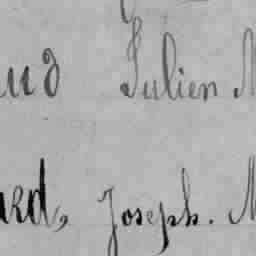 ud Julien M
ard, Joseph. M